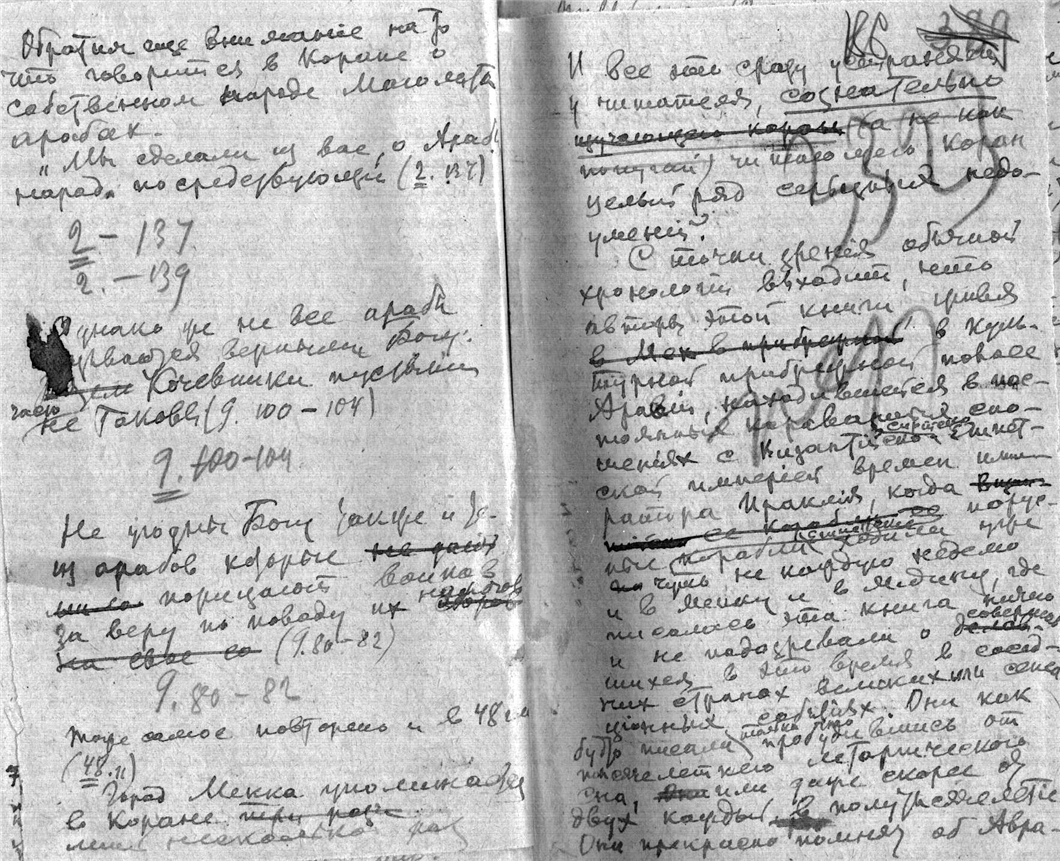 Обратим еще внимание на то
что говорится в Коране о
собственном народе Магомета
арабах.
"Мы сделали из вас, о Арабы
народ посредствующий (2.137)
2 – 137
2. – 139
Однако же не все арабы
верными Богу.
Кочевники пустыни
не таковы (9. 100–104)
9. 100–104
Не угодны Богу также и те
из арабов которые
порицают воинов
за веру по поводу их наборов
(9.80–82)
9. 80 – 82
Тоже самое повторено и в 48 гл
(48.11)
Город Мекка упоминается
в Коране три раз
лишь несколько раз
И все это сразу устраняет
у читателя, сознательно
изучающего коран (а не как
попугай) читающего Коран
целый ряд серьезных недо-
умений.
С точки зрения обычной
хронологии выходит, что
авторы этой книги живя
в Мек в прибрежной в куль-
турной прибрежной полосе
Аравии, находившейся в пос-
тоянных караванных сно-
шениях с Византийско-Египет-
сирийско
ской империей времен импе-
ратора Ираклия, когда
парус-
ные корабли ходили уже
чуть не каждую неделю
и в Мекку и в Медину, где
писалась эта книга ничего
и не подозревали о соверша-
вшихся в это время в сосед-
них странах великих или сенса-
ционных событиях. Они как
будто писали только что пробудившись от
тысячелетнего летаргического
сна, или даже скорее от
двух каждый в полтысячелетие
Они прекрасно помнят об Авра-